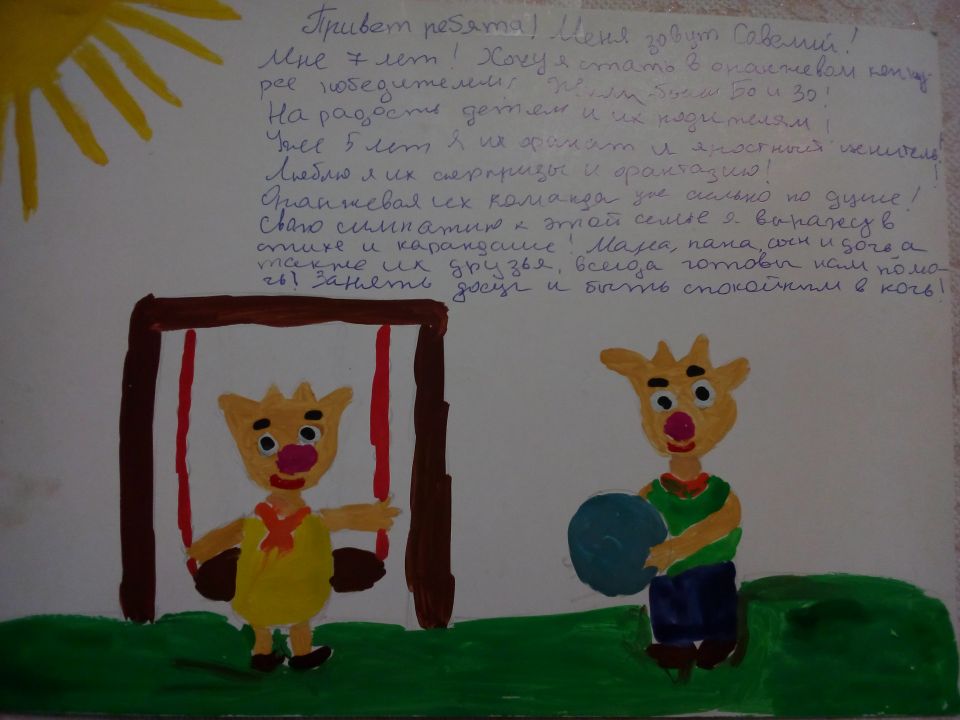 Привет ребята! Меня зовут Савелий!
Мне 7 лет! Хочу я стать в оранжевом конку-
рсе победителем, Жили-были Бо и Зо!
На радость детям и их родителям!
Уже 5 лет я их фанат и яростный ценитель!
Люблю я их сюрпризы и фантазию!
Оранжевая их команда уже сильно по душе!
Свою симпатию к этой семье я выражу в
стихе и карандаше! Мама, папа, сын и дочь а
также их друзья, всегда готовы нам помо-
чь! Занять досуг и быть спокойным в ночь!